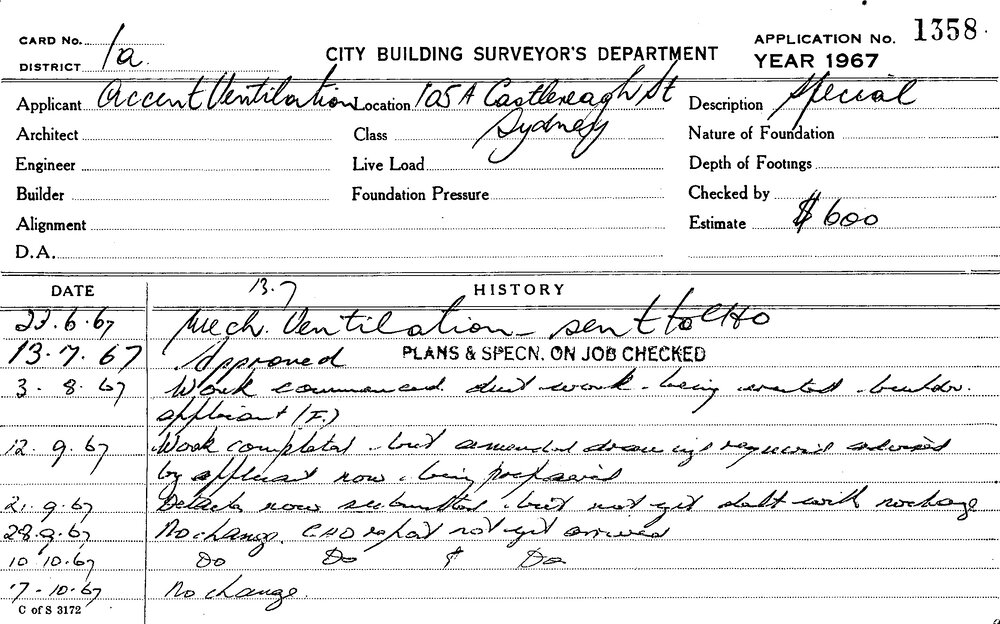 CARD No. APPLICATION No. 1358.
DISTRICT 1a. CITY BUILDING SURVEYOR'S DEPARTMENT YEAR 1967
Applicant Accent Ventilation Location 105A Castlereagh St Description Special
Architect Class Sydney Nature of Foundation
Engineer Live Load Depth of Footings
Builder Foundation Pressure Checked by
Alignment Estimate $600
D.A.
DATE 13.7 HISTORY
23.6.67 Mech. Ventilation - sent to CHO
13.7.67 Approved PLANS & SPECN. ON JOB CHECKED
3.8.67 Work commenced. duct work being erected. builder.
applicant (F.)
12.9.67 Work completed - but amended drawings required advised
by applicant now being prepared
21.9.67 Details now submitted but not yet dealt with no change
28.9.67 No change. CHO report not yet arrived
10.10.67 Do Do & Do
7-10-67 No change.
C of S 3172